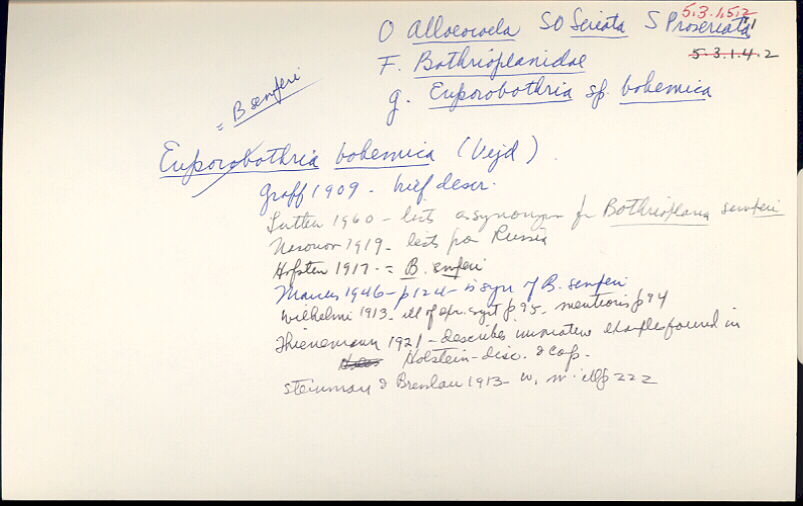 5.3.1.5.2
O Alloeocoela SO Seriata S Proseriata
5.3.1.4.2
F. Bothrioplanidae
g. Euporobothria sp. bohemica
= B semperi
Euporobothria bohemica (Vejd).
Graff 1909 - brief descr.
Luther 1960 - lists as synonym for Bothrioplana semperi
Nasonov 1919 - lists for Russia
Hofsten 1917 - = B. semperi
Marcus 1946 - p124 - is syn of B. semperi
Wilhelmi 1913 - ill of syst p 95 - mentions p 94
Thienemann 1921 - describes immature examples found in
Holstein - disc. & cop.
Steinmann & Bresslau 1913 - w. m. ill p 222